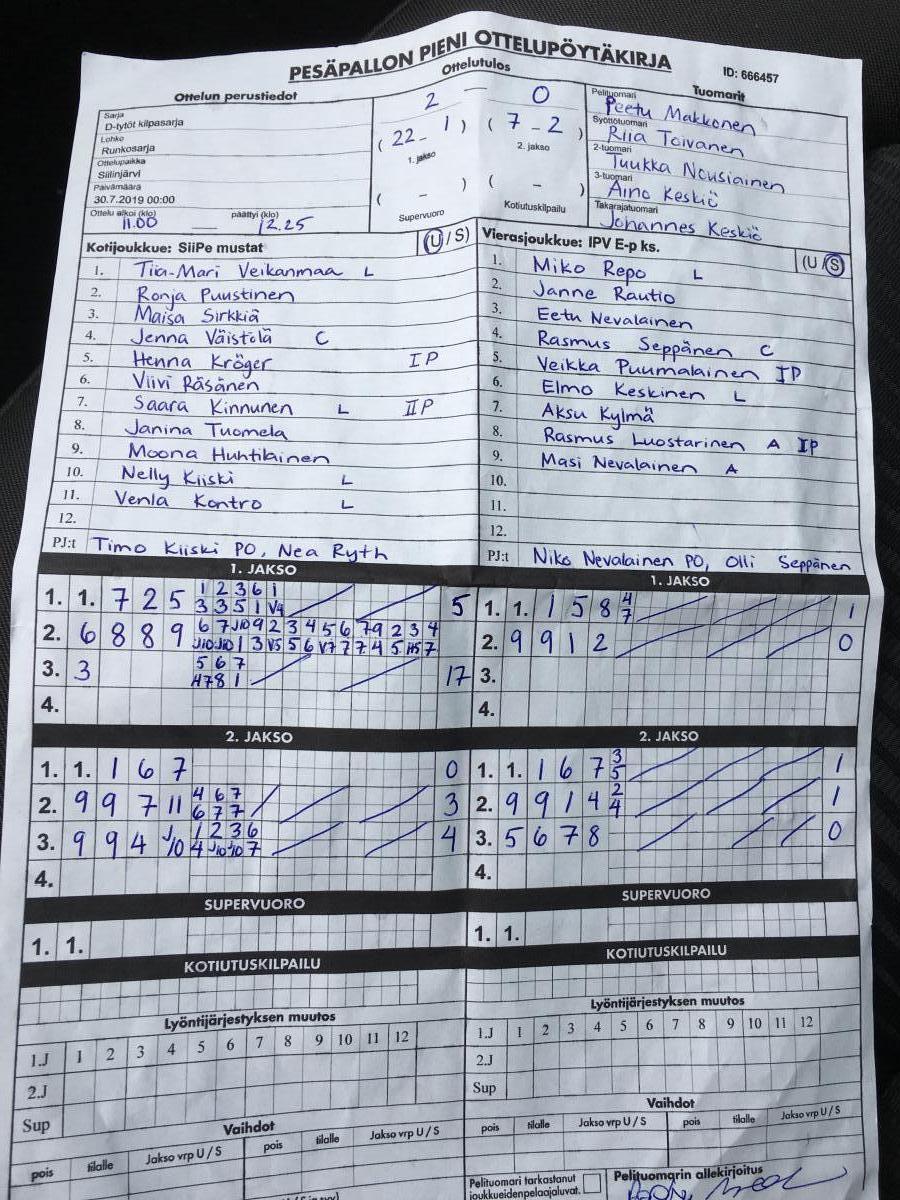 PESÄPALLON PIENI OTTELUPÖYTÄKIRJA
ID: 666457
Ottelun perustiedot
Ottelutulos
Tuomarit
Sarja
D-tytöt kilpasarja
Lohko
Runkosarja
Ottelupaikka
Siilinjärvi
Päivämäärä
30.7.2019 00:00
Ottelu alkoi (klo) päättyi (klo)
11.00 — 12.25
2 — 0
( 22 - 1 ) ( 7 - 2 )
1. jakso 2. jakso
( - ) ( - )
Supervuoro Kotiutuskilpailu
Pelituomari
Peetu Makkonen
Syöttötuomari
Riia Toivanen
2-tuomari
Tuukka Nousiainen
3-tuomari
Aino Keskiö
Takarajatuomari
Johannes Keskiö
Kotijoukkue: SiiPe mustat (U / S)
1. Tiia-Mari Veikanmaa L
2. Ronja Puustinen
3. Maisa Sirkkiä
4. Jenna Väistölä C
5. Henna Kröger IP
6. Viivi Räsänen
7. Saara Kinnunen L IIP
8. Janina Tuomela
9. Moona Huhtilainen
10. Nelly Kiiski L
11. Venla Kontro L
12.
PJ:t Timo Kiiski PO, Nea Ryth
Vierasjoukkue: IPV E-p ks. (U / S)
1. Miko Repo L
2. Janne Rautio
3. Eetu Nevalainen
4. Rasmus Seppänen C
5. Veikka Puumalainen IP
6. Elmo Keskinen L
7. Aksu Kylmä
8. Rasmus Luostarinen A IP
9. Masi Nevalainen A
10.
11.
12.
PJ:t Niko Nevalainen PO, Olli Seppänen
1. JAKSO
1. 1. 7 2 5 1 2 3 6 1 5
3 3 5 1 V4
2. 6 8 8 9 6 7 J10 9 2 3 4 5 6 7 9 2 3 4
J10 J10 1 3 V5 5 6 V7 7 7 4 5 H5 7
3. 3 5 6 7 17
H7 8 1
4.
1. JAKSO
1. 1. 1 5 8 4 1
7
2. 9 9 1 2 0
3.
4.
2. JAKSO
1. 1. 1 6 7 0
2. 9 9 7 11 4 6 7 3
6 7 7
3. 9 9 4 J10 1 2 3 6 4
4 J10 J10 7
4.
2. JAKSO
1. 1. 1 6 7 3 1
5
2. 9 9 1 4 2 1
4
3. 5 6 7 8 0
4.
SUPERVUORO
1. 1.
SUPERVUORO
1. 1.
KOTIUTUSKILPAILU
KOTIUTUSKILPAILU
Lyöntijärjestyksen muutos
1.J 1 2 3 4 5 6 7 8 9 10 11 12
2.J
Sup
Lyöntijärjestyksen muutos
1.J 1 2 3 4 5 6 7 8 9 10 11 12
2.J
Sup
Vaihdot
pois tilalle Jakso vrp U / S pois tilalle Jakso vrp U / S
Vaihdot
pois tilalle Jakso vrp U / S pois tilalle Jakso vrp U / S
Pelituomari tarkastanut
joukkueidenpelaajaluvat.
Pelituomarin allekirjoitus